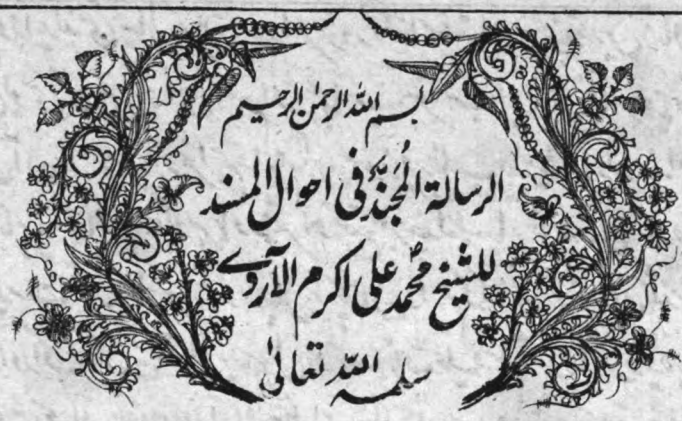 بسم الله الرحمن الرحيم
الرسالة في احوال المسند
للشيخ محمد علي اكرم الآروي
سلمه الله تعالى